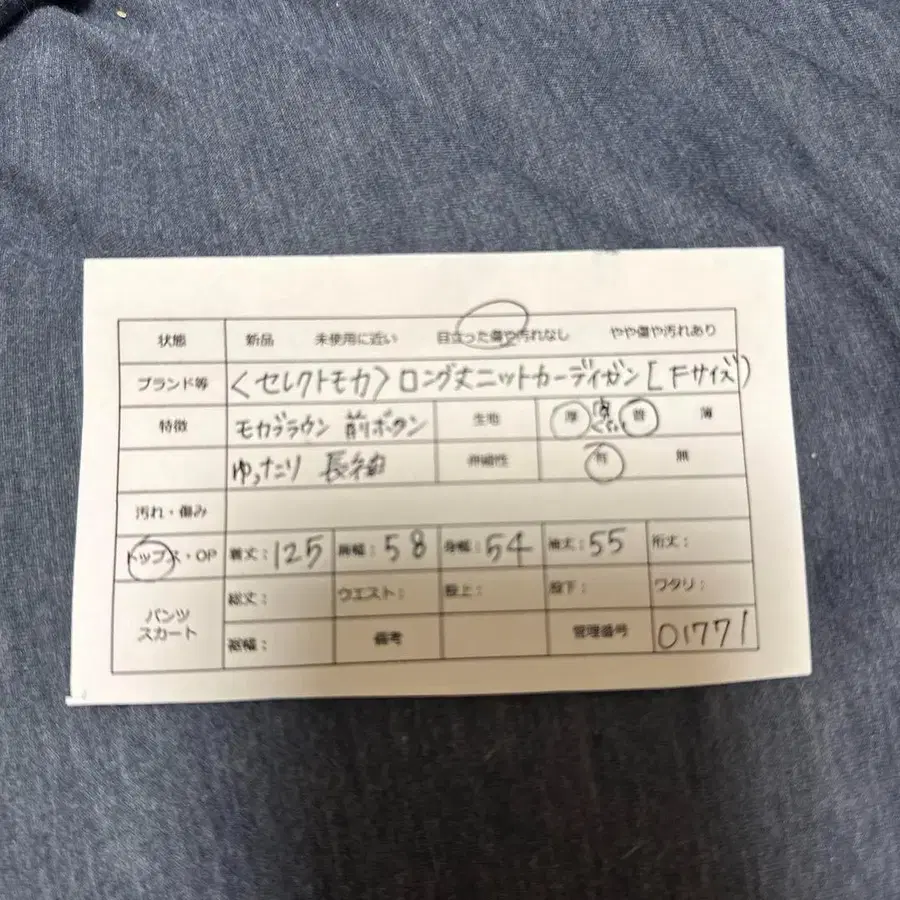 状態 新品 未使用に近い 目立った傷や汚れなし やや傷や汚れあり
ブランド等 〈セレクトモカ〉ロング丈ニットカーディガン[Fサイズ)
特徴 モカブラウン 前ボタン 生地 厚 普 薄
ゆったり 長袖 伸縮性 有 無
汚れ・傷み
トップス・OP 着丈：125 肩幅：58 身幅：54 袖丈：55 裄丈：
パンツ スカート 総丈： ウエスト： 股上： 股下： ワタリ：
裾幅： 備考 管理番号 01771